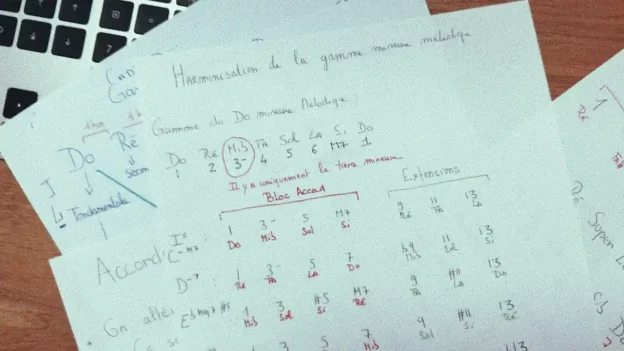 HARMONISATION de la gamme mineure mélodique
Gamme de Do mineur Mélodique :
Do Ré Mib Fa Sol La Si Do
1 2 3- 4 5 6 M7 1
Il y a uniquement la tierce mineure
Bloc Accord
Extensions
1 3- 5 M7 9 11 13
C-M7 : Do Mib Sol Si Ré Fa La
D-7 : 1 3- 5 7 b9 11 13
Ré Fa La Do Mib Sol Si
EbMaj7#5 : 1 3 #5 M7 9 #11 13
Mib Sol Si Ré Fa La Do
1 3 5 7 9 #11 13
Sol Si Ré
Do Ré
Fondamentale
1
Accord
On
Super